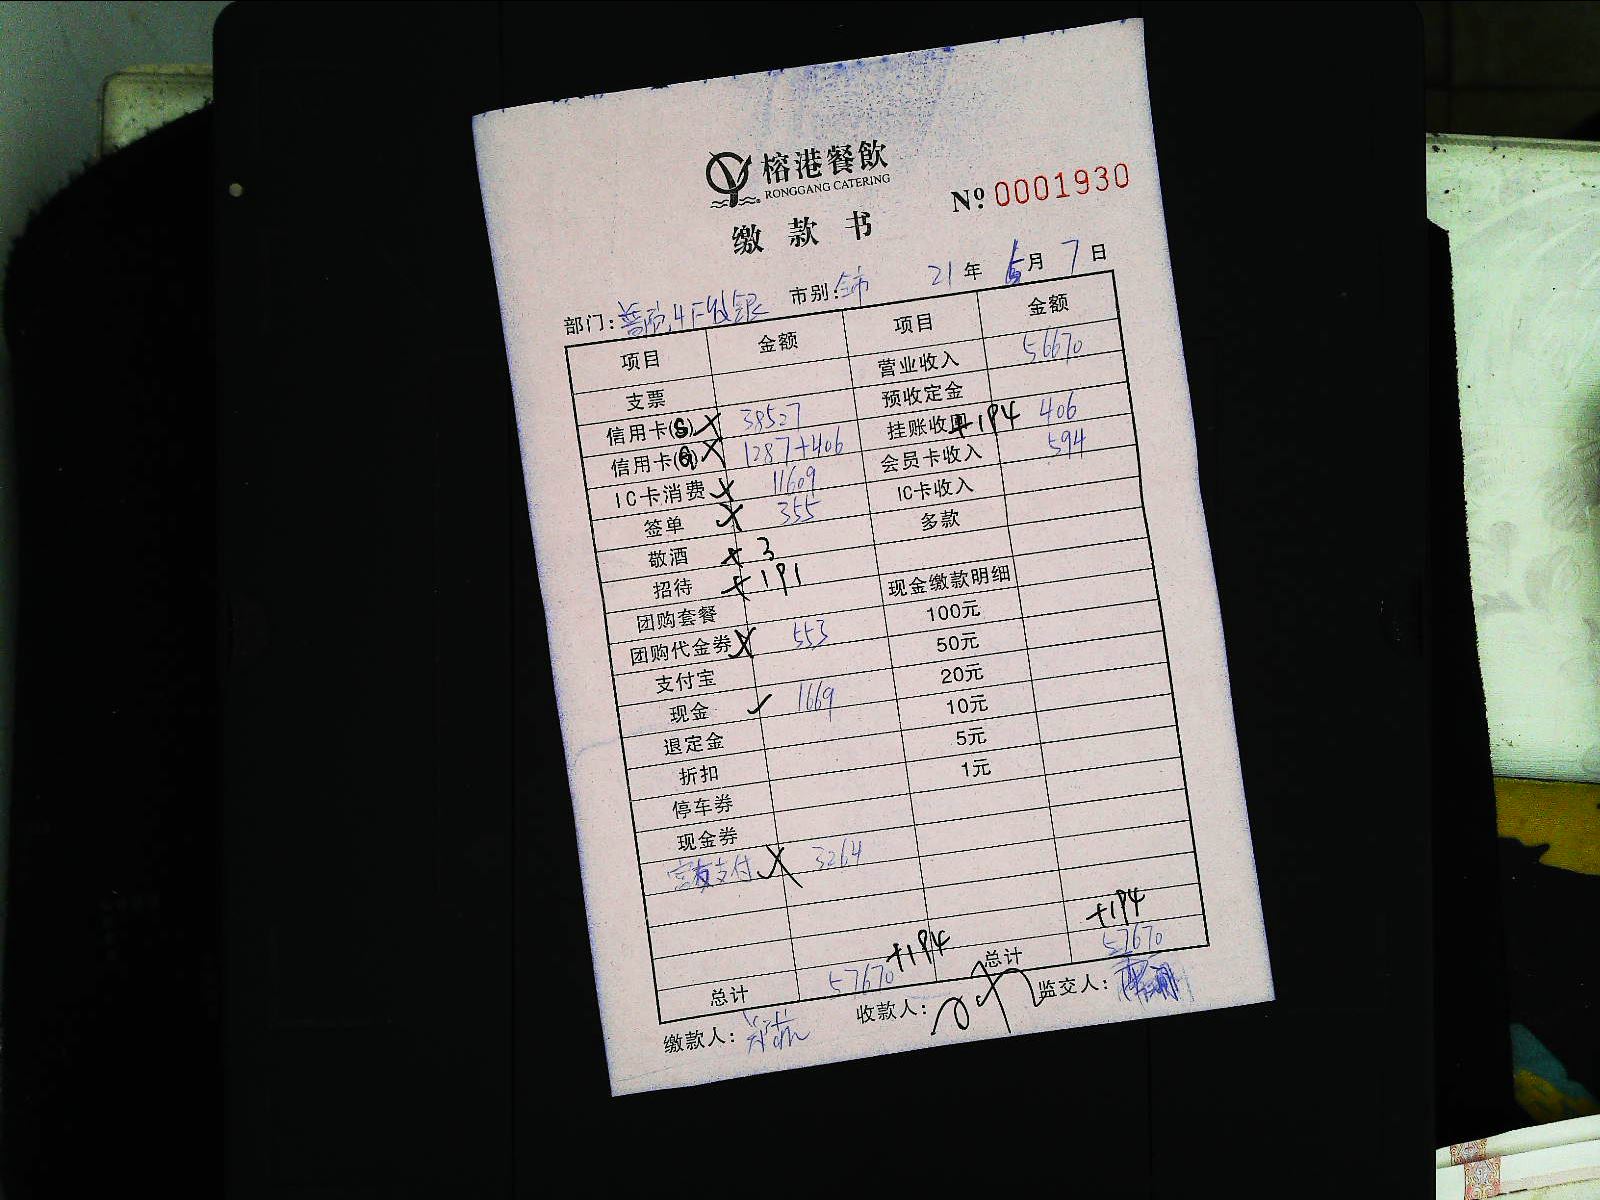 榕港餐飲
RONGGANG CATERING
№ 0001930
缴款书
部门: 市别: 全市 21年 月 7日
项目 金额 项目 金额
支票 营业收入 56670
信用卡(S) 38527 预收定金
信用卡(Q) 1287+406 挂账收回 +194 406
IC卡消费 11609 会员卡收入 594
签单 355 IC卡收入
敬酒 +3 多款
招待 +191
团购套餐 现金缴款明细
团购代金券 553 100元
支付宝 50元
现金 ✓ 1669 20元
退定金 10元
折扣 5元
停车券 1元
现金券
支付 3264
总计 57670 +194 总计 57670 +194
缴款人: 收款人: 监交人: